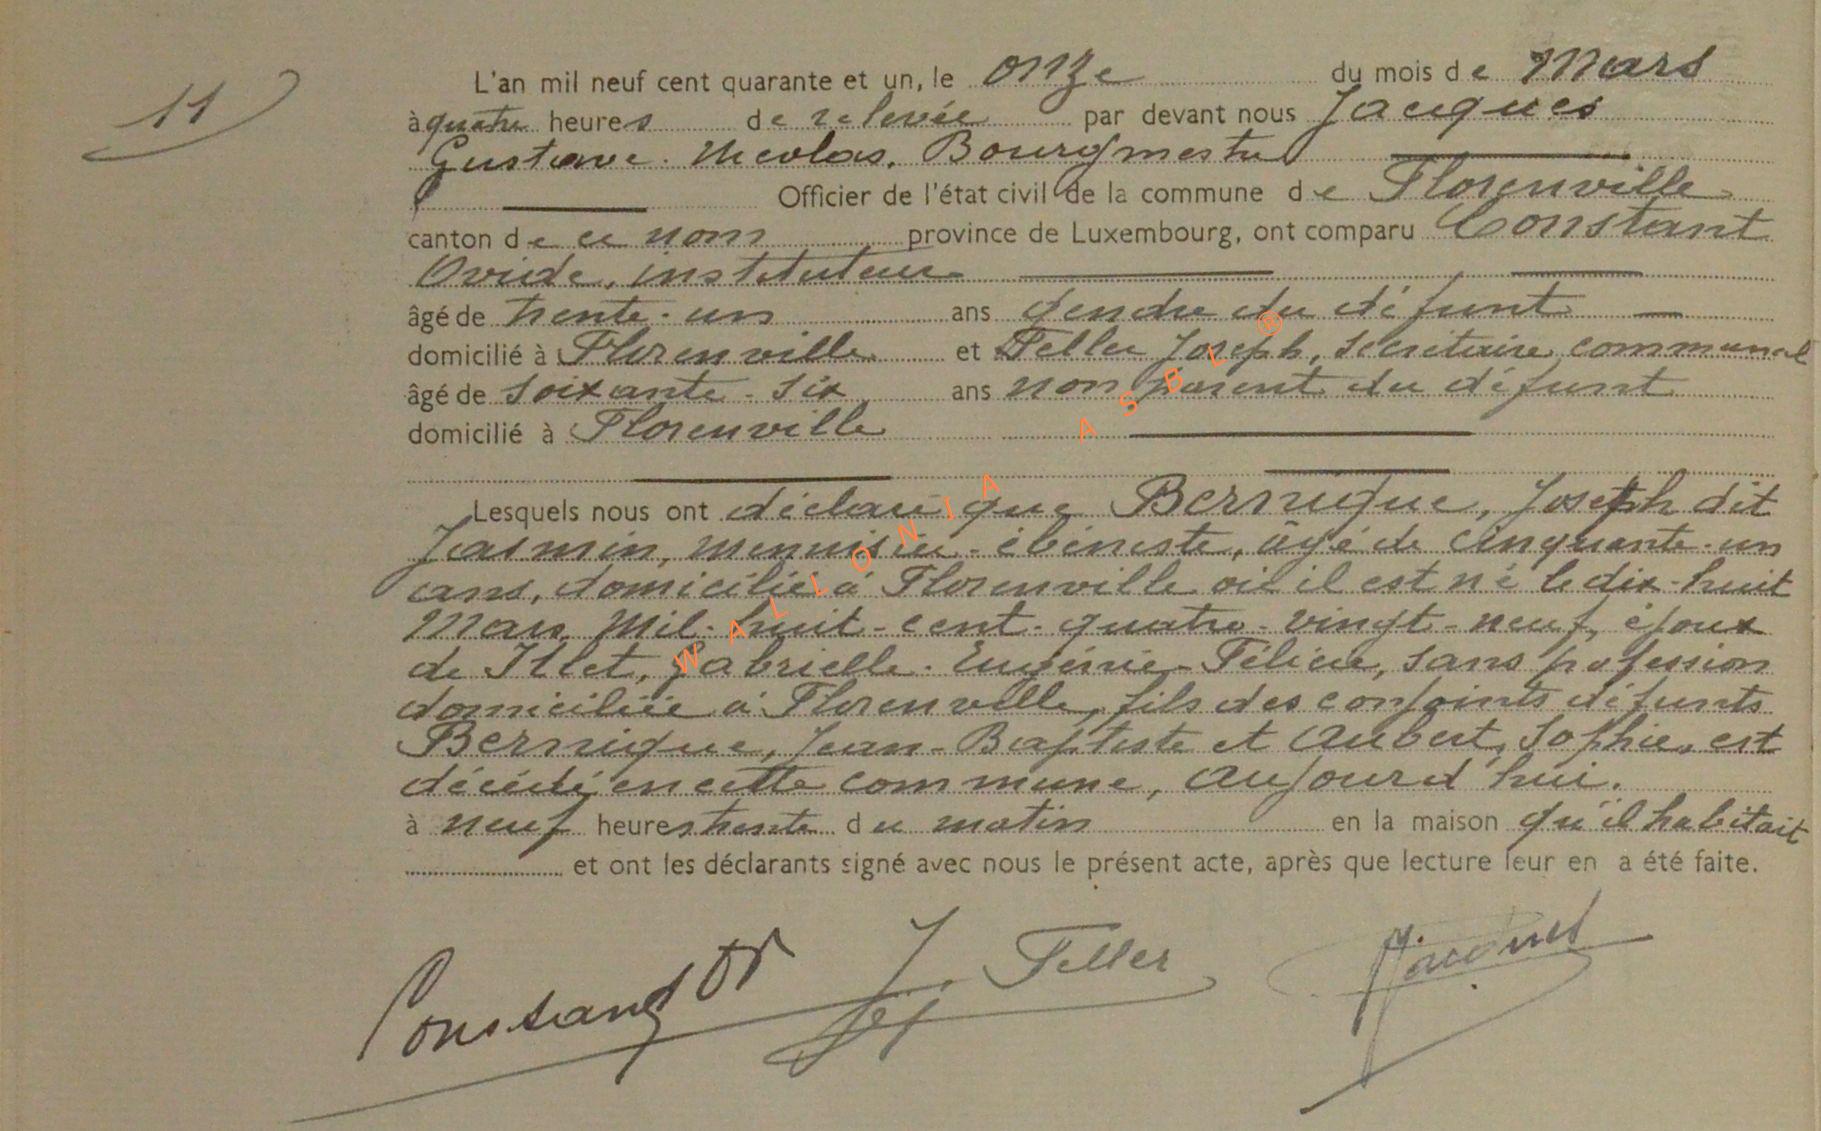 11
L'an mil neuf cent quarante et un, le onze du mois de Mars
à quatre heures de relevée par devant nous Jacques
Gustave. Nicolas. Bourgmestre
Officier de l'état civil de la commune de Florenville
canton de ce nom province de Luxembourg, ont comparu Constant
Ovide, instituteur
âgé de trente-un ans gendre du défunt
domicilié à Florenville et Feller Joseph, secrétaire communal
âgé de soixante-six ans non parent du défunt
domicilié à Florenville
Lesquels nous ont déclaré que Bernique, Joseph dit
Jasmin, menuisier-ébéniste, âgé de cinquante-un
ans, domicilié à Florenville où il est né le dix-huit
Mars, mil-huit-cent-quatre-vingt-neuf, époux
de Itlet, Gabrielle-Eugénie-Félicie, sans profession
domiciliée à Florenville, fils des conjoints défunts
Bernique, Jean-Baptiste et Aubert, Sophie, est
décédé en cette commune, aujourd'hui.
à neuf heures trente du matin en la maison qu'il habitait
et ont les déclarants signé avec nous le présent acte, après que lecture leur en a été faite.
Constant J. Feller Jacques
WALLONIA ASBL ®